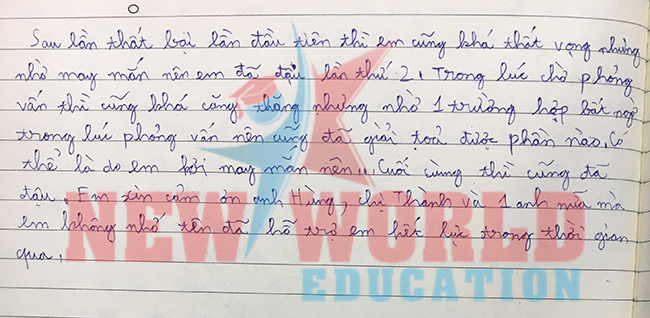 Sau lần thất bại lần đầu tiên thì em cũng khá thất vọng nhưng
nhờ may mắn nên em đã đậu lần thứ 2. Trong lúc chờ phỏng
vấn thì cũng khá căng thẳng nhưng nhờ 1 trường hợp bất ngờ
trong lúc phỏng vấn nên cũng đã giải toả được phần nào. Có
thể là do em hơi may mắn nên... Cuối cùng thì cũng đã
đậu. Em xin cảm ơn anh Hùng, chị Thành và 1 anh nữa mà
em không nhớ tên đã hỗ trợ em hết lực trong thời gian
qua.
NEW WORLD
EDUCATION